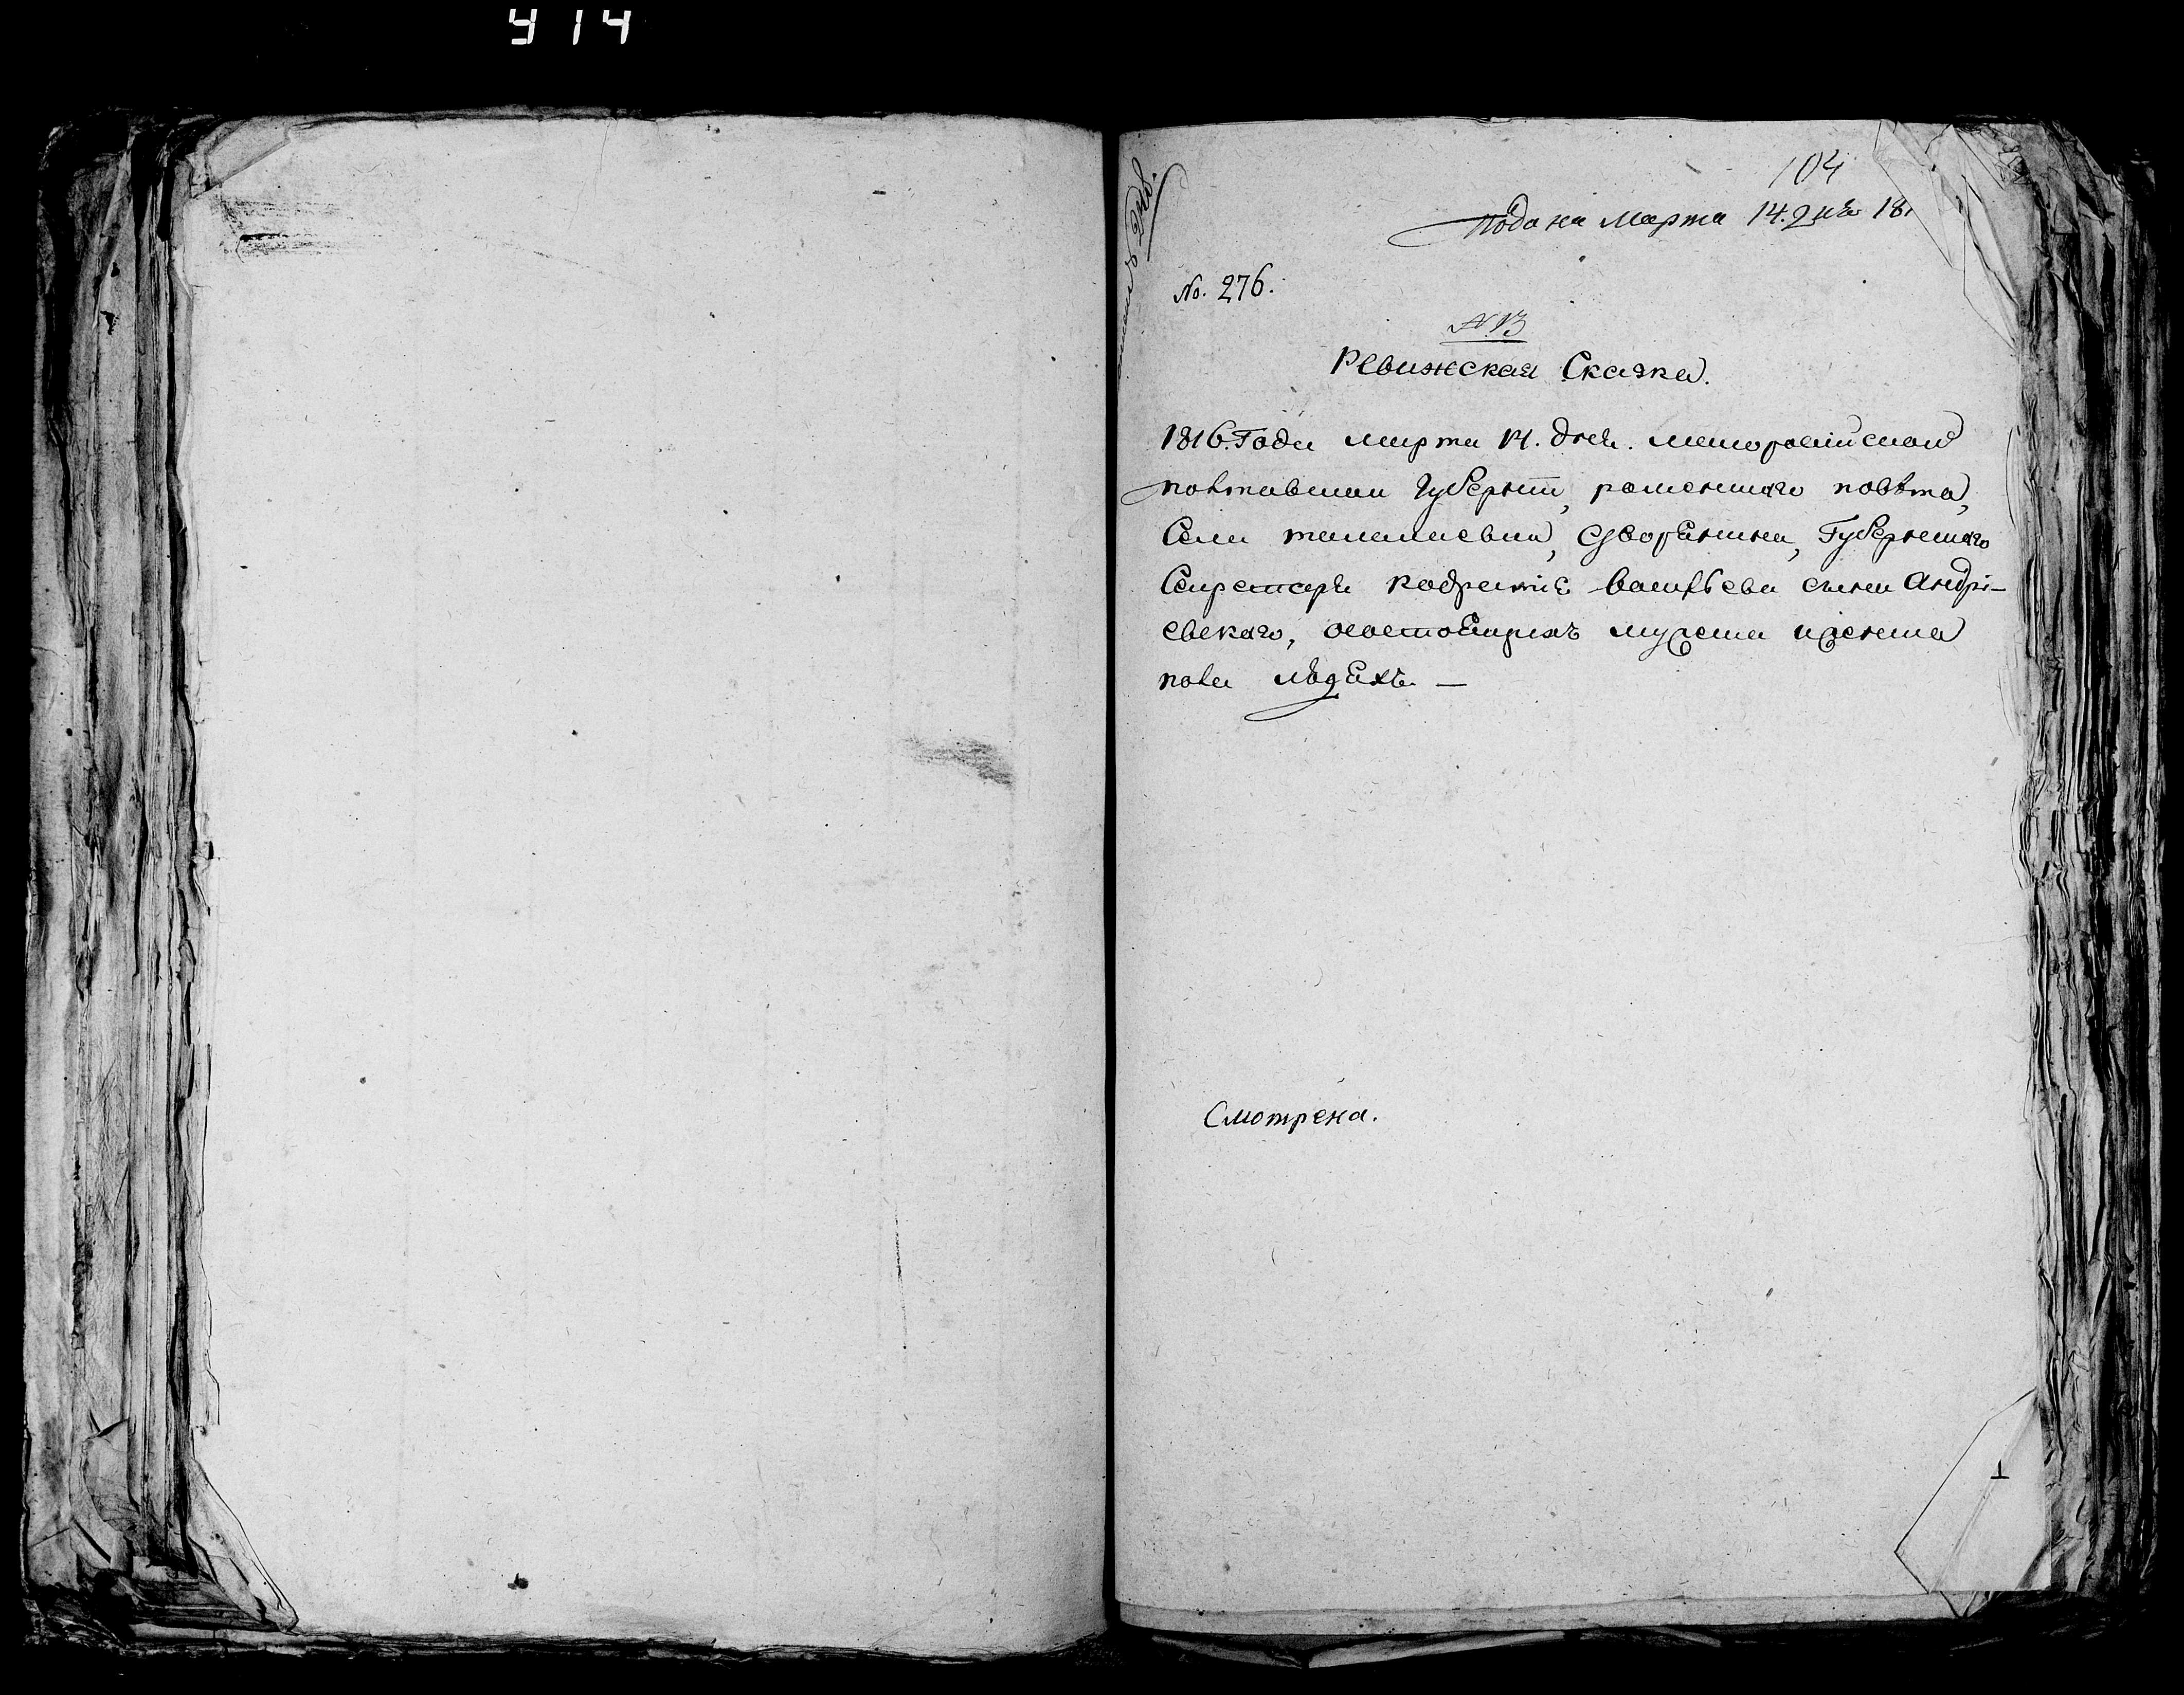 414
104
Подана Марта 14. дня 181
No. 276.
N. 13
Ревижская Сказка.
1816. Года марта 14. дня. малоросийской
полтавской Губернии, роменского повѣта,
Села талалаевки, дворянина, Губернского
Секретаря кодратія василѣева сына Андрі-
евского, о состоящихъ мужеска и женска
пола людяхъ —
Смотрена.